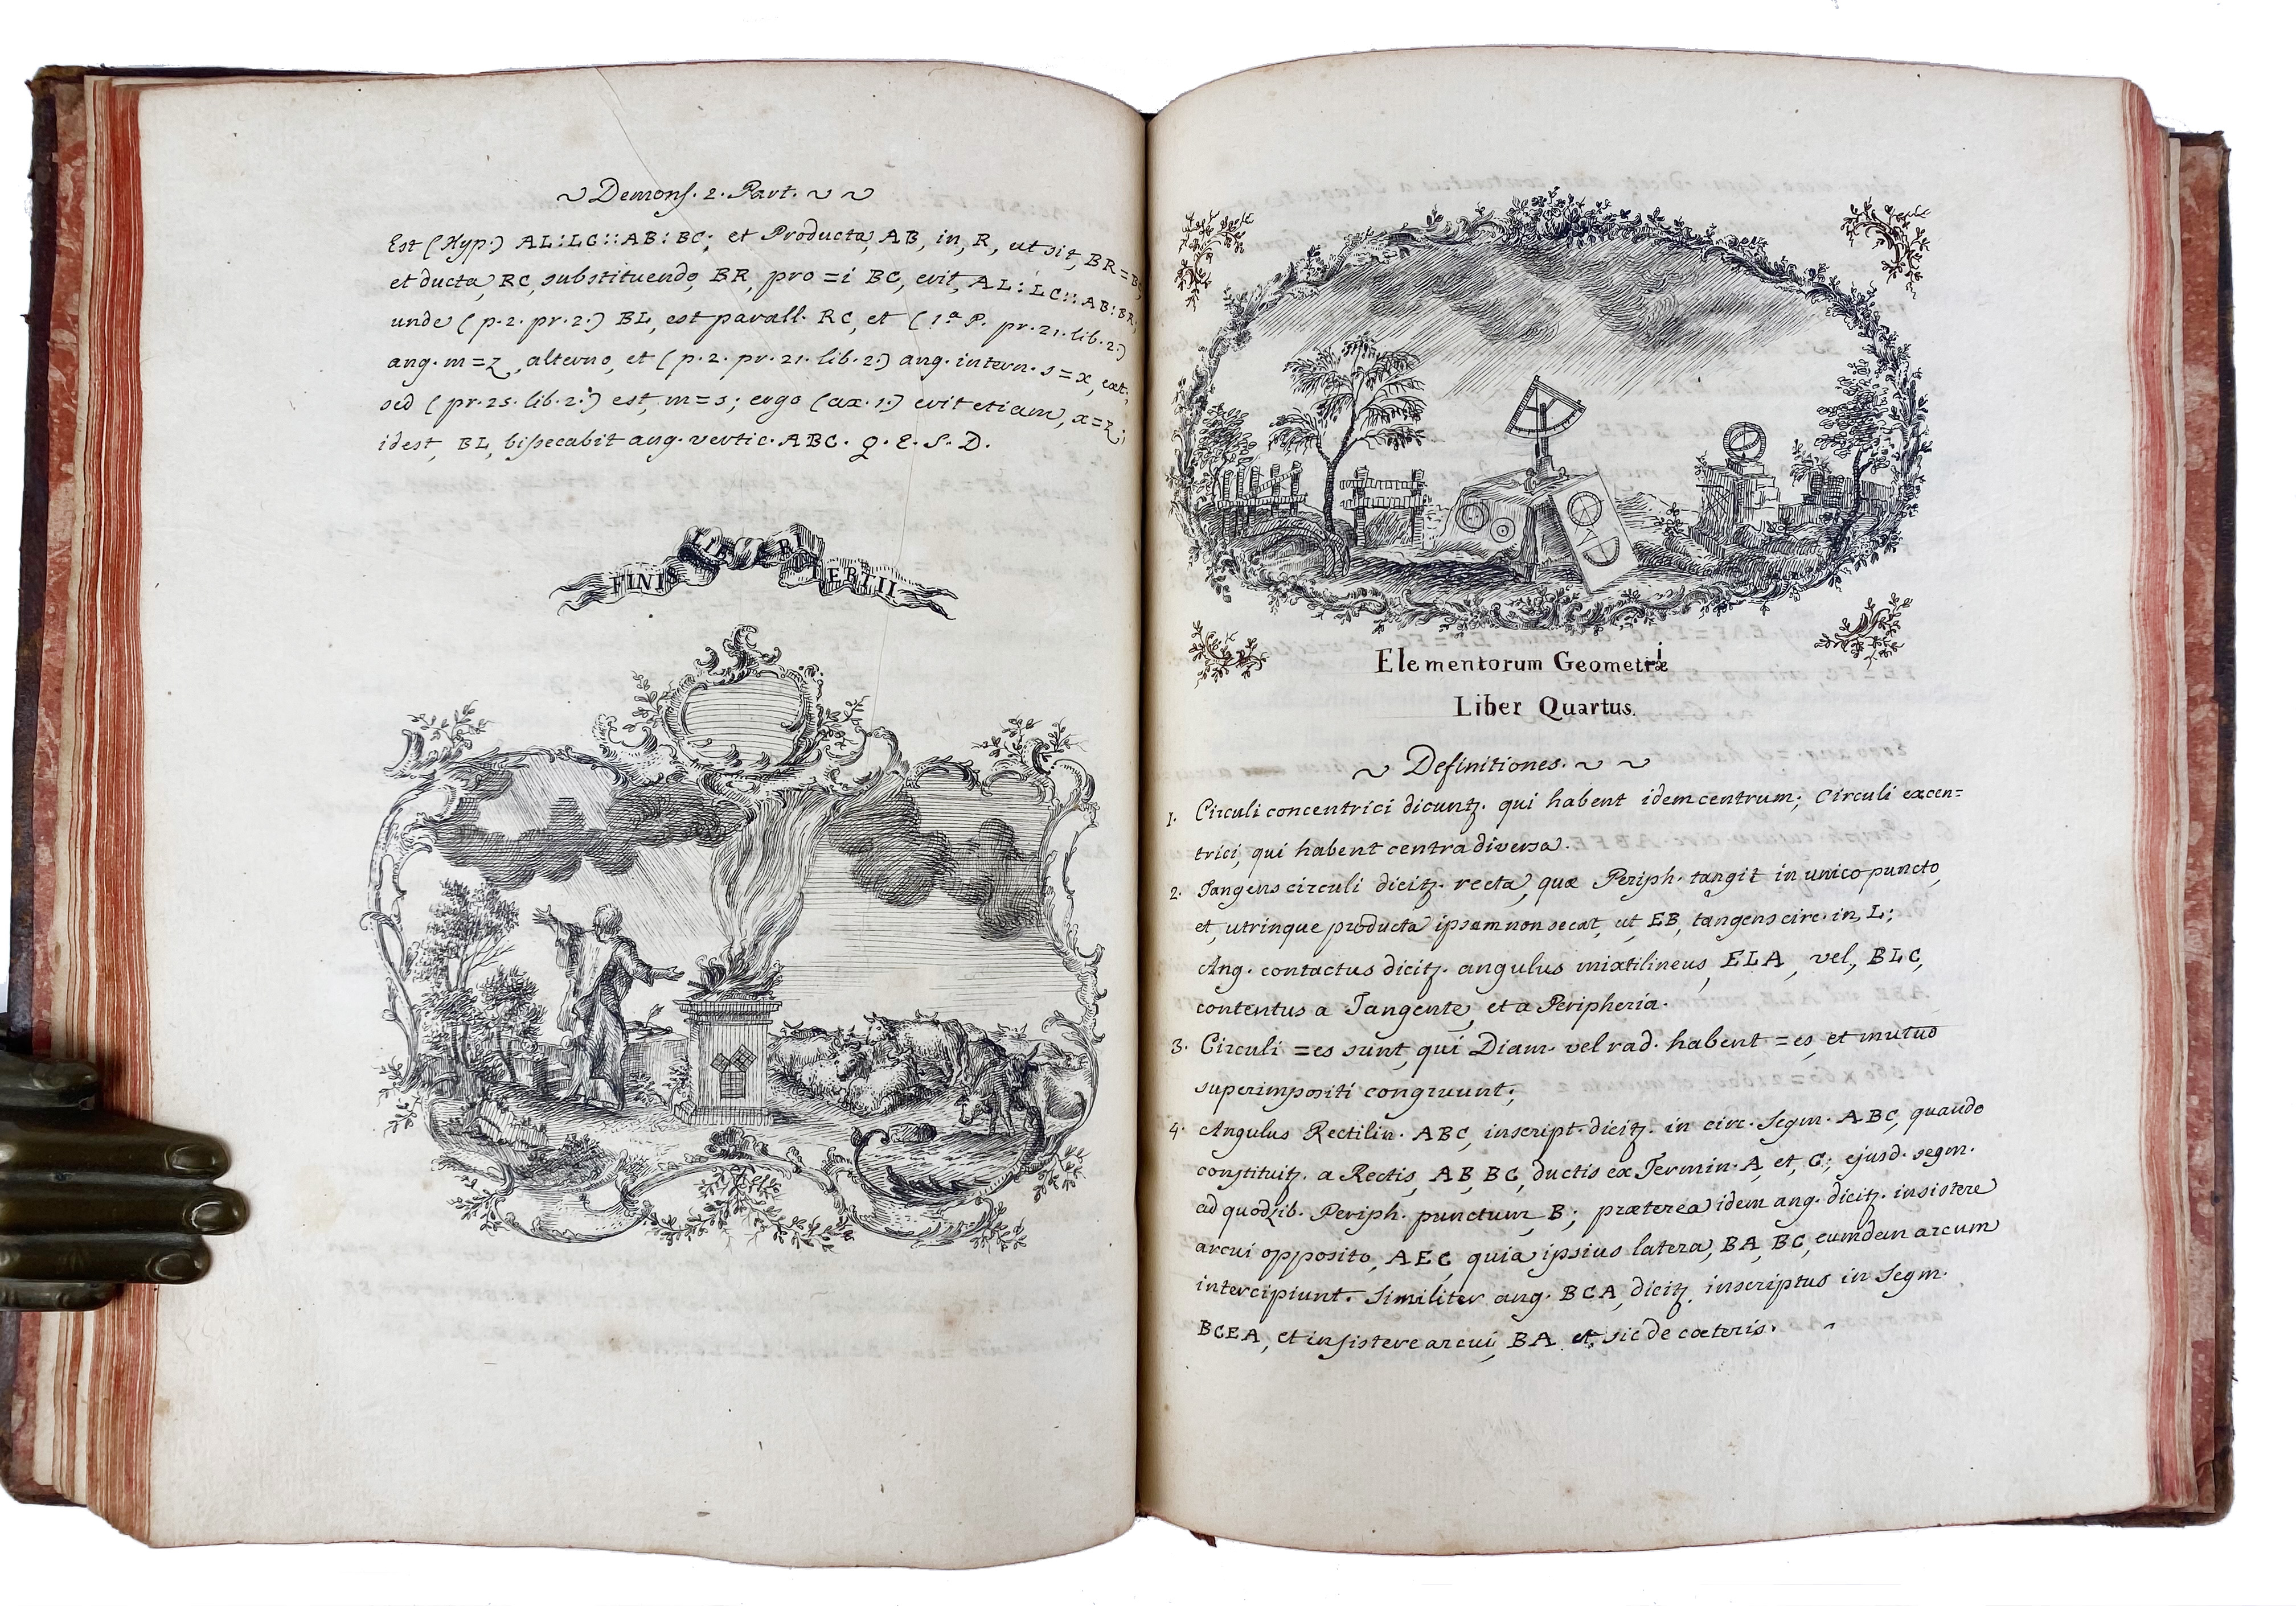 ~ Demons. 2. Part. ~ ~
Est (Hyp:) AL:LC::AB:BC; et Producta, AB, in, R, ut sit, BR=B
et ducta, RC, substituendo, BR, pro =i BC, erit, AL:LC::AB:BR;
unde (p. 2. pr. 2:) BL, est parall. RC, et (1ª P. pr. 21. lib. 2:)
ang. m=z, alterno, et (p. 2. pr. 21. lib. 2:) ang. intern. s=x, ext;
sed (pr. 25. lib. 2:) est, m=s; ergo (ax. 1:) erit etiam, x=z;
idest, BL, bissecabit ang. vertic. ABC. Q. E. S. D.
FINIS LIBRI TERTII
Elementorum Geometriæ
Liber Quartus.
~ Definitiones. ~ ~
1. Circuli concentrici dicuntz. qui habent idem centrum; Circuli excen=
trici, qui habent centra diversa.
2. Tangens circuli dicitz. recta, quæ Periph. tangit in unico puncto,
et, utrinque producta ipsam non secat, ut EB, tangens circ. in, L;
Ang. contactus dicitz. angulus mixtilineus, ELA, vel, BLC,
contentus a Tangente, et a Peripheria.
3. Circuli =es sunt, qui Diam. vel rad. habent =es, et mutuo
superimpositi congruunt;
4. Angulus Rectilin. ABC, inscript. dicitz. in circ. Segm. ABC, quando
constituitz. a Rectis, AB, BC, ductis ex Termin. A, et, C; ejusd. segm.
ad quodlib. Periph. punctum, B; præterea idem ang. dicitz. insistere
arcui opposito, AEC, quia ipsius latera, BA, BC, eumdem arcum
intercipiunt. Similiter ang. BCA, dicitz. inscriptus in Segm.
BCEA, et insistere arcui, BA, et, sic de cæteris.